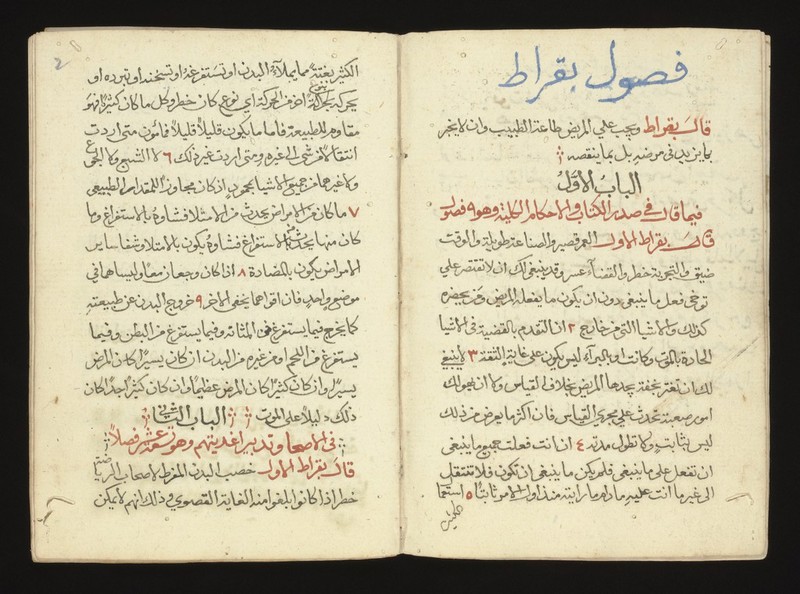 فصول بقراط
قال بقراط ويجب على المريض طاعة الطبيب وان لا يخبر
بما يزيد في مرضه بل بما ينقصه
الباب الاول
فيما قال في صدر الكتاب والاحكام الكلية وهو ٩ فصول
قال بقراط الاول العمر قصير والصناعة طويلة والوقت
ضيق والتجربة خطر والقضاء عسر وقد ينبغي لك ان لا تقتصر على
توخي فعل ما ينبغي دون ان يكون ما يفعله المريض ومن يحضره
كذلك والاشيا التي من خارج ٢ ان التقدم بالقضية في الاشيا
الحادة بالموت كانت او بالبرآء ليس يكون على غاية الثقة ٣ لا ينبغي
لك ان تغتر بخفة يجدها المريض بخلاف القياس ولا ان تهولك
امور صعبة تحدث على مجرى القياس فان اكثر ما يعرض من ذلك
ليس بثابت ولا تطول مدته ٤ ان انت فعلت جميع ما ينبغي
ان تفعل على ما ينبغي فلم يكن ما ينبغي ان يكون فلا تنتقل
الى غير ما انت عليه مادام ما رايته منذ اول الامر ثابتا ٥ استعمال
الكثير
2
الكثير بغتة مما يملاء البدن او تستفرغه او تسخنه او تبرده او
يحركه بحركة اخرى اي نوع كان خطر وكل ما كان كثيرا فهو
مقاوم للطبيعة فاما ما يكون قليلا قليلا فمأون متى اردت
انتقالا من شي الى غيره ومتى اردت غير ذلك ٦ لا الشبع ولا الجوع
ولا غيرهما من جميع الاشيا بمحمود اذ كان مجاوزا للمقدار الطبيعي
٧ ما كان من الامراض يحدث من الامتلا فشفاوه بالاستفراغ وما
كان منها يحدث من الاستفراغ فشفاوه يكون بالامتلا وشفا ساير
الامراض يكون بالمضادة ٨ اذا كان وجعان معا وليسا هما في
موضع واحد فان اقواهما يخفى الاخر ٩ خروج البدن عن طبيعته
كما يخرج فيما يستفرغ من المثانة وفيما يستفرغ من البطن وفيما
يستفرغ من اللحم او من غيره من البدن ان كان يسيرا كان المرض
يسيرا وان كان كثيرا كان المرض عظيما وان كان كثيرا جدا كان
ذلك دليلا على الموت الباب الثاني
في الاصحا وتدبير اغذيتهم وهو عشر فصلا
قال بقراط الاول خصب البدن المفرط لاصحاب الرياضة
خطر اذا كانوا بلغوا منه الغاية القصوي وذلك انهم لا يمكن